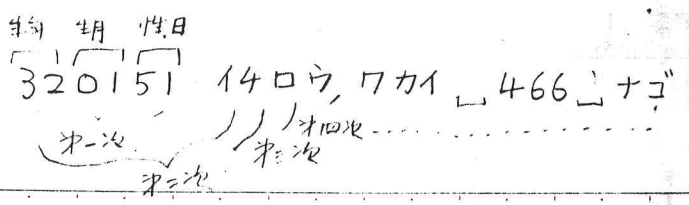 生年 生月 性.日
320151 イチロウ,ワカイ ␣ 466 ␣ ナゴ
第一次 第四次............
第三次
第二次